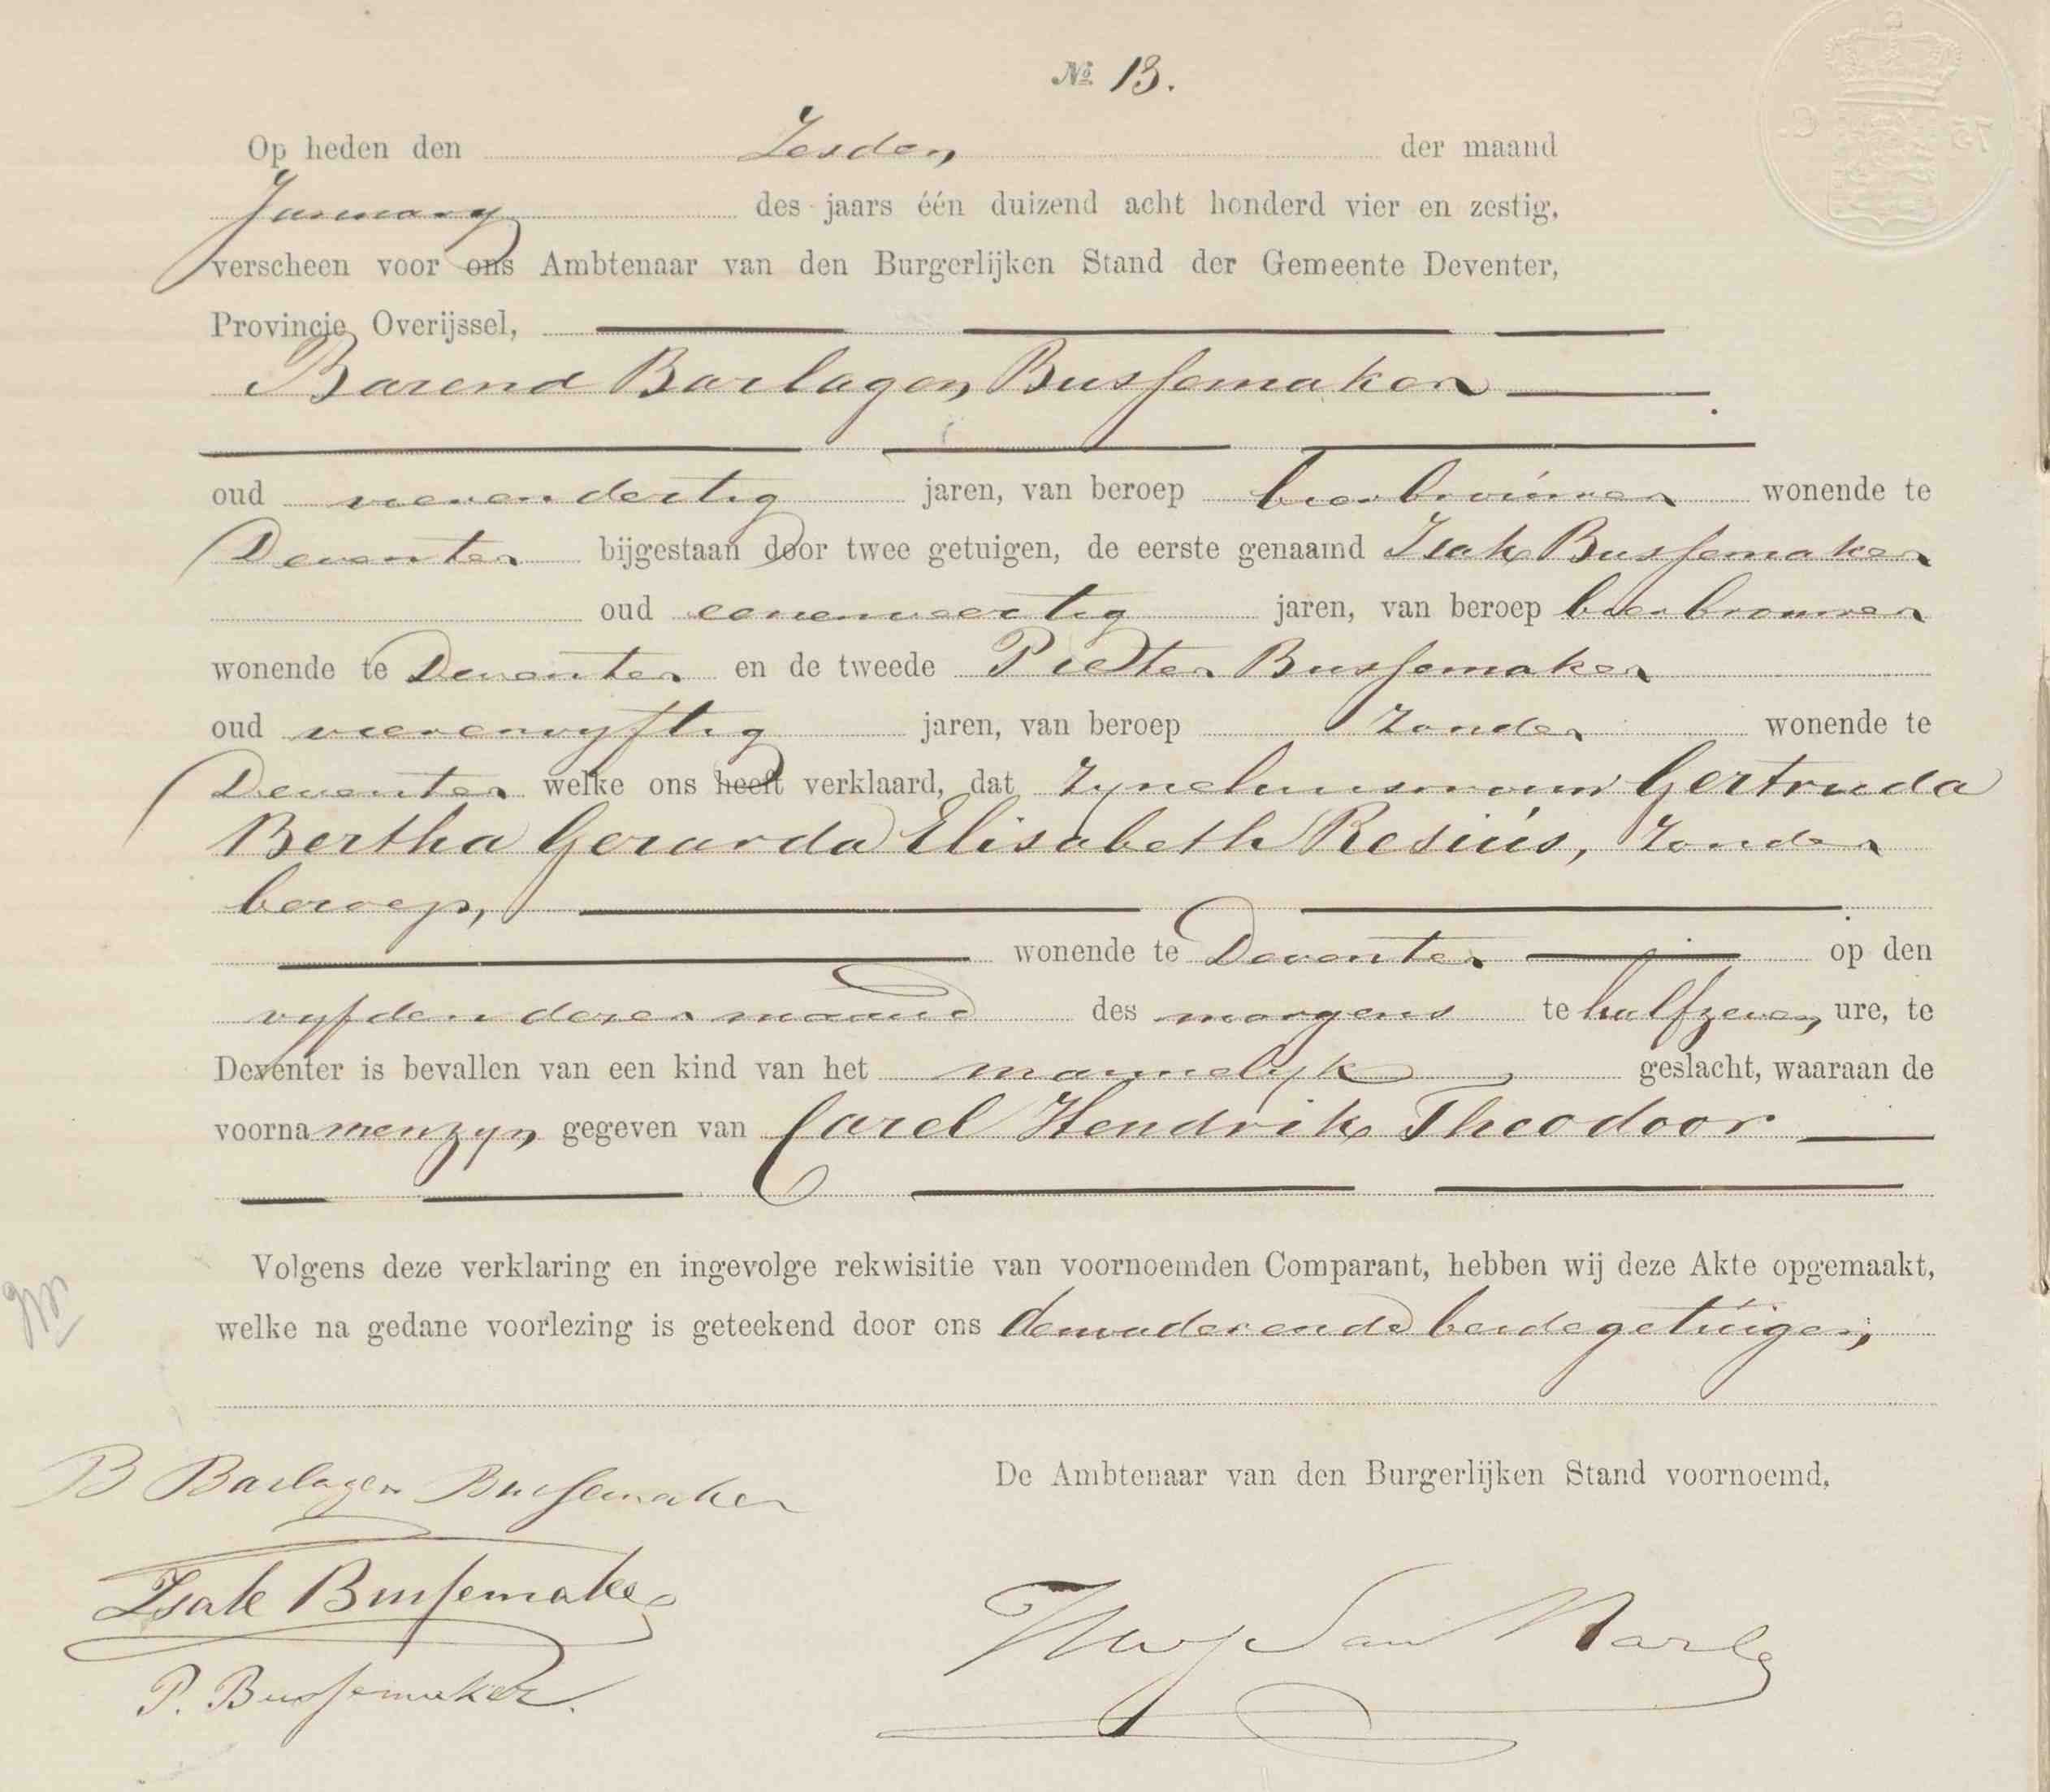 № 13.
Op heden den Zesden der maand
January des jaars één duizend acht honderd vier en zestig,
verscheen voor ons Ambtenaar van den Burgerlijken Stand der Gemeente Deventer,
Provincie Overijssel,
Barend Barlagen Bussemaker
oud vierendertig jaren, van beroep bierbrouwer wonende te
Deventer bijgestaan door twee getuigen, de eerste genaamd Isak Bussemaker
oud eenenveertig jaren, van beroep bierbrouwer
wonende te Deventer en de tweede Pieter Bussemaker
oud vierenvyftig jaren, van beroep zonder wonende te
Deventer welke ons heeft verklaard, dat zyne huisvrouw Gertruda
Bertha Gerarda Elisabeth Resius, zonder
beroep,
wonende te Deventer op den
vyfden dezer maand des morgens te halfzeven ure, te
Deventer is bevallen van een kind van het mannelyk geslacht, waaraan de
voornamen zyn gegeven van Carel Hendrik Theodoor
Volgens deze verklaring en ingevolge rekwisitie van voornoemden Comparant, hebben wij deze Akte opgemaakt,
welke na gedane voorlezing is geteekend door ons den vader en de beide getuigen,
B Barlagen Bussemaker
De Ambtenaar van den Burgerlijken Stand voornoemd,
Isak Bussemaker
van Marle
P. Bussemaker